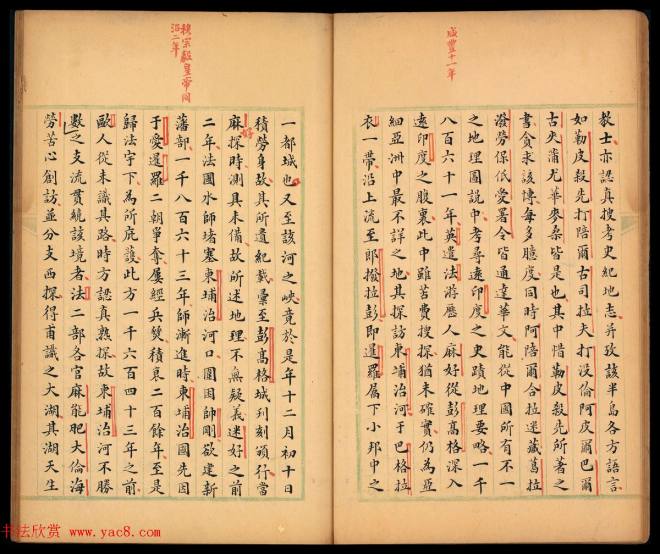 咸豐十一年
教士亦認真搜考史紀地志并攷該半島各方語言
如勒皮殺先打陪爾古司拉夫打沒倫阿皮爾巴爾
古夾蒲尤華麥桑皆是也其中惜勒皮殺先所著之
書貪求該博每多臆度同時阿陪爾合拉迷藏葛拉
潑勞保低愛署令皆通達華文能從中國所有不一
之地理圖說中考尋遠印度之史蹟地理要略一千
八百六十一年英遣法游歷人麻好從彭高格深入
遠印度之腹裏此中雖苦費搜探猶未確實仍為亞
細亞洲中最不詳之地其探訪東埔治河于巴格拉
衣一帶沿上流至郎撥拉彭即暹羅屬下小邦中之
穆宗毅皇帝同
治二年
一都城也又至該河之峽竟於是年十二月初十日
積勞身故其所遺紀載彙至彭高格城刋刻頒行當
麻探時測具未備故所述地理不無疑義迷好之前
好
二年法國水師堵塞東埔治河口圍困師剛欲建新
藩部一千八百六十三年師漸進時東埔治國先因
于愛暹羅二朝爭奪屢經兵燹積衰二百餘年至是
歸法宇下為所庇護此方一千六百四十三年之前
歐人從未識其路時方認真熟探故東埔治河不勝
數之支流貫繞該境者法二部各官麻能肥大倫海
勞苦心創訪並分支西探得甫識之大湖其湖天生
书法欣赏 www.yac8.com